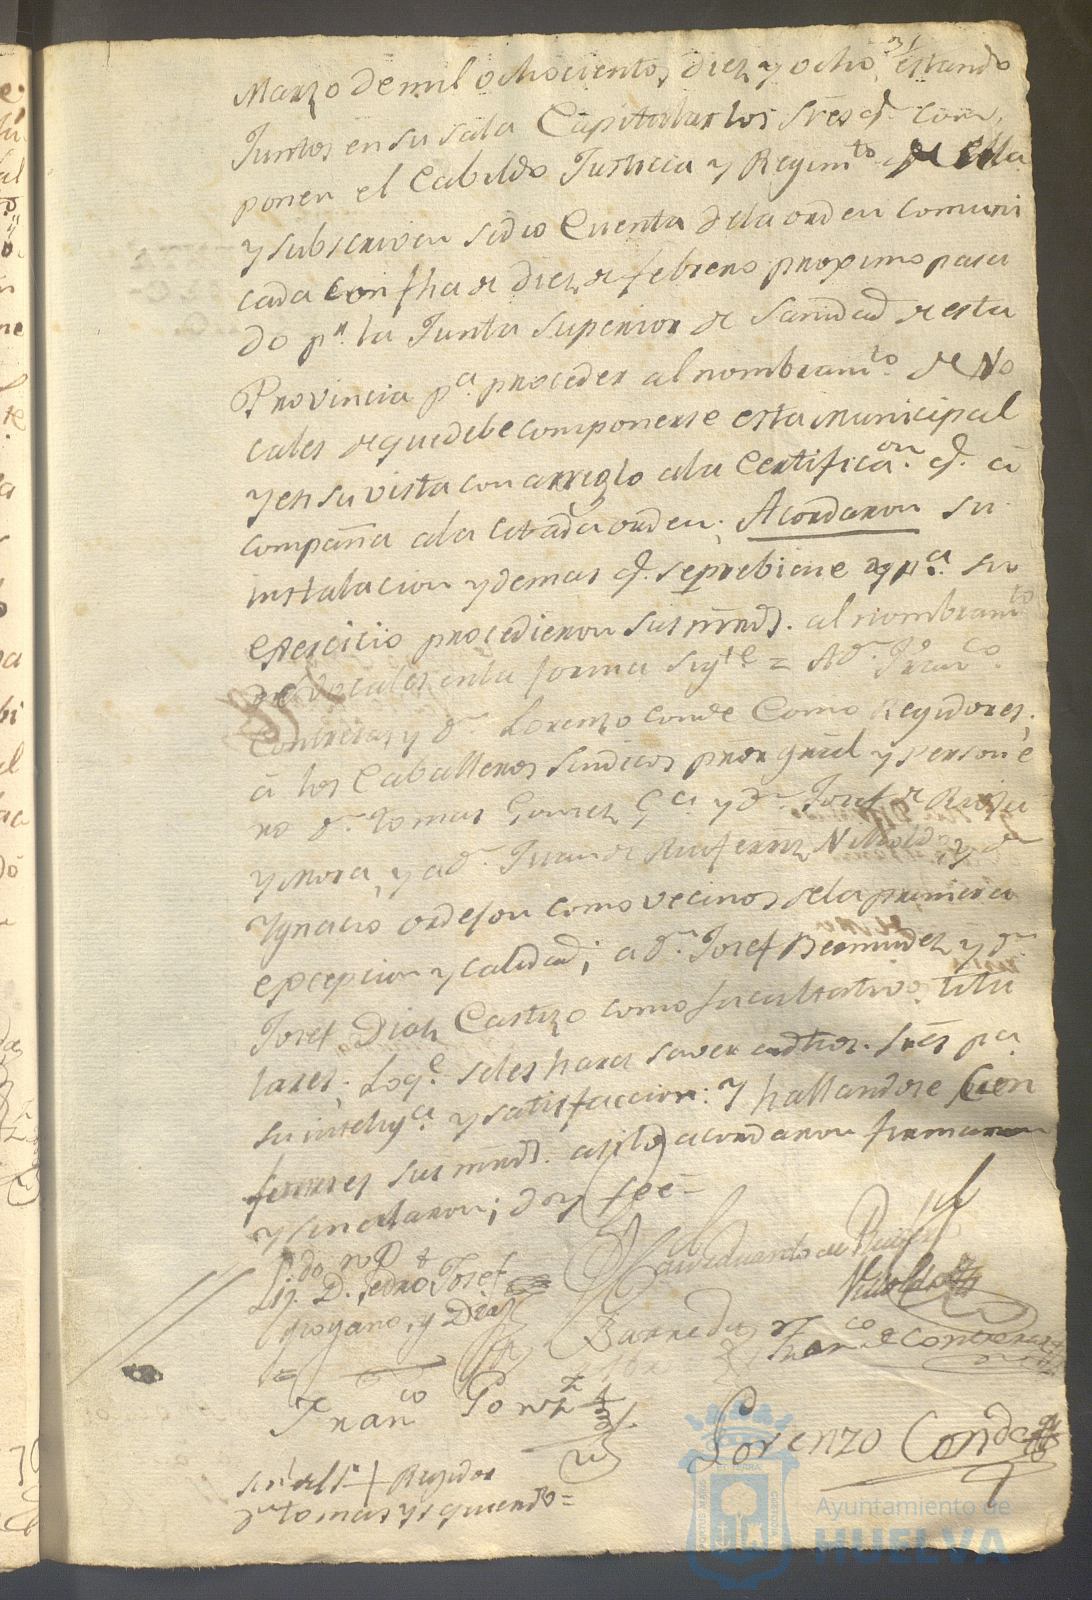 Marzo de mil ochocientos diez y ocho, estando
Juntos en su sala Capitular los Sres q.e com
ponen el Cabildo Justicia y Regim.to de ella
y subscriven se dio Cuenta de la orden comuni
cada con fha de diez de febrero proximo pasa
do p.r la Junta Superior de Sanidad de esta
Provincia p.a proceder al nombram.to de Vo
cales de que debe componerse esta Municipal
y en su vista con arreglo a la Certificaon. q.e a
compaña a la citada orden; Acordaron su
instalacion y demas q.e se prebiene y p.a su
exercicio procedieron sus mrds. al nombram.to
de vocales en la forma sig.te = A D.n Fran.co
Contreras y D.n Lorenzo Conde Como Regidores;
a los Caballeros Sindicos pror gnāl y Person e
ro D.n Tomas Gomez G.ca y D.n Josef de Rioja
y Mora, y a D.n Juan de Ruifernz Niholdo, y D.n
Ygnacio Ordejon como vecinos de la primera
excepcion y calidad; a D.n Josef Bermudez y D.n
Josef Diaz Castizo como facultativos titu
lares; Lo q.e se les hara saver a dhos. Sres pa
su intelig.ca y satisfaccion: y hallandose Con
formes sus mrds. asi lo acordaron firmaron
y señalaron; doy fee =
Lizdo. D. Pedro Josef
Moyano, y Diaz
Barreda
Fran.co de Contreras
Fran.co Gonz
Lorenzo Conde
señal + Regidor
D.n tomas ysquierdo =
Ayuntamiento de
HUELVA